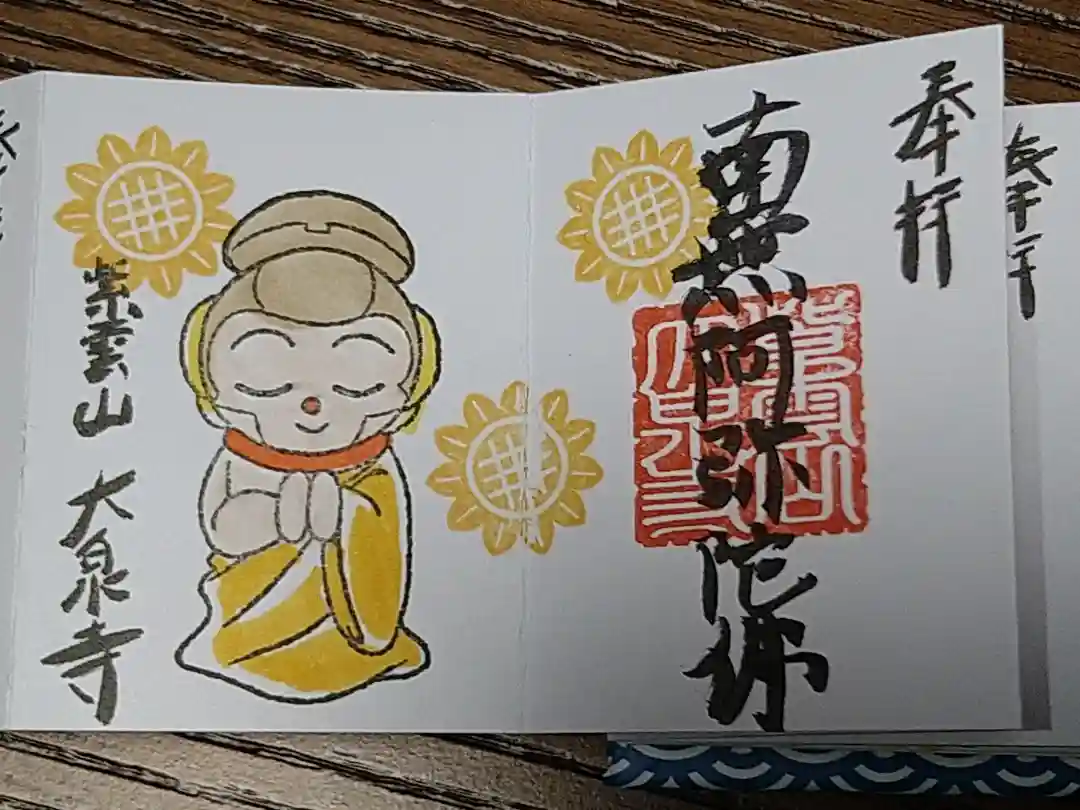 奉拝
南無阿弥陀佛
紫雲山 大泉寺